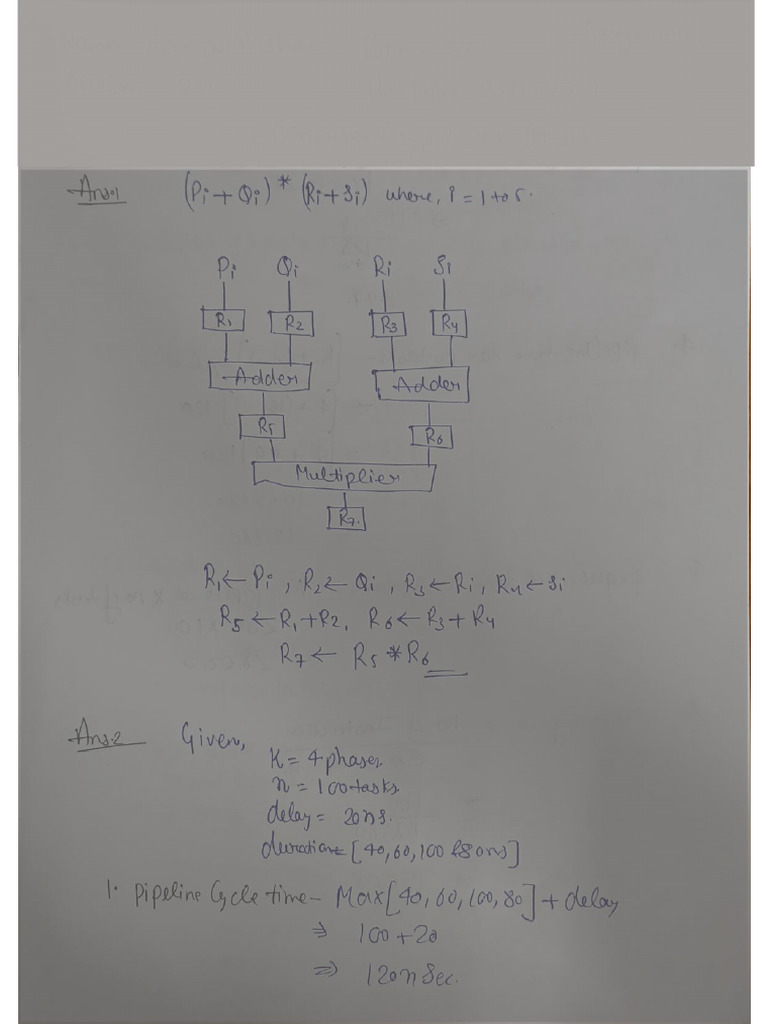 Ans:1 (Pi + Qi) * (Ri + Si) where, i = 1 to 5.
Pi Qi Ri Si
R1 R2 R3 R4
Adder Adder
R5 R6
Multiplier
R7.
R1 ← Pi , R2 ← Qi , R3 ← Ri, R4 ← Si
R5 ← R1 + R2, R6 ← R3 + R4
R7 ← R5 * R6
Ans:2 Given,
K = 4 phases
n = 100 tasks
delay = 20ns.
duration = [40, 60, 100 &80ns]
1. Pipeline Cycle time - Max[40, 60, 100, 80] + delay
⇒ 100 + 20
⇒ 120n Sec.